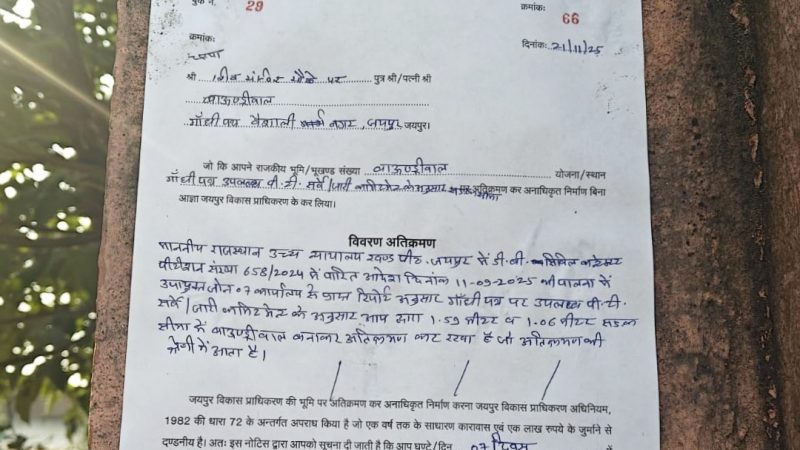 बुक नं. 29
क्रमांकः 66
क्रमांकः
दिनांकः 21/11/25
श्री शिव मंदिर मौके पर पुत्र श्री/पत्नी श्री
बाऊण्ड्रीवाल
गाँधी पथ वैशाली नगर, जयपुर जयपुर।
जो कि आपने राजकीय भूमि/भूखण्ड संख्या बाऊण्ड्रीवाल योजना/स्थान
गाँधी पथ उपलब्ध पी.टी. सर्वे/जारी कमिटमेन्ट के अनुसार अतिक्रमण कर अनाधिकृत निर्माण बिना
आज्ञा जयपुर विकास प्राधिकरण के कर लिया।
विवरण अतिक्रमण
माननीय राजस्थान उच्च न्यायालय खण्ड पीठ, जयपुर में डी.बी. सिविल
पीटीशन संख्या 658/2024 में पारित आदेश दिनांक 11-09-2025 की पालना में
उपायुक्त जोन 07 कार्यालय से प्राप्त रिपोर्ट अनुसार गाँधी पथ पर उपलब्ध पी.टी.
सर्वे/जारी कमिटमेन्ट के अनुसार आप द्वारा 1.59 मीटर व 1.06 मीटर सड़क
सीमा में बाऊण्ड्रीवाल बनाकर अतिक्रमण कर रखा है जो अतिक्रमण की
श्रेणी में आता है।
जयपुर विकास प्राधिकरण की भूमि पर अतिक्रमण कर अनाधिकृत निर्माण करना जयपुर विकास प्राधिकरण अधिनियम,
1982 की धारा 72 के अन्तर्गत अपराध किया है जो एक वर्ष तक के साधारण कारावास एवं एक लाख रुपये के जुर्माने से
दण्डनीय है। अतः इस नोटिस द्वारा आपको सूचना दी जाती है कि आप घण्टे/दिन 07 दिवस में